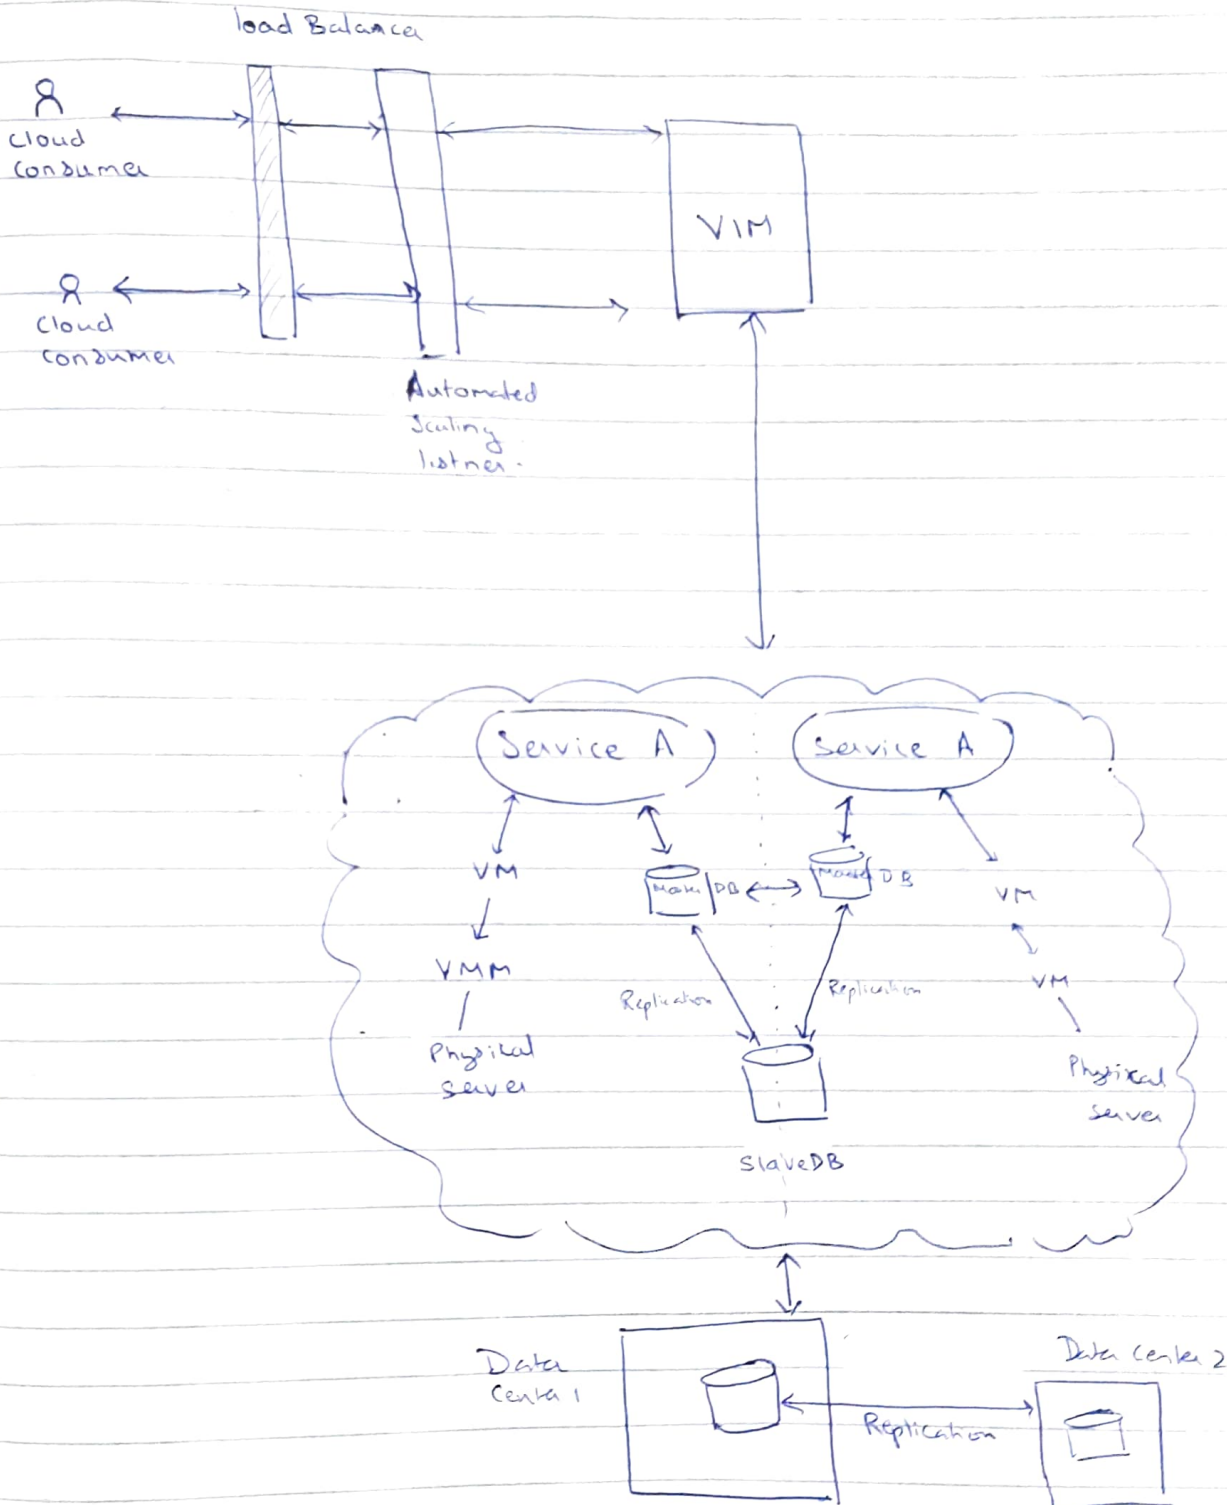 load Balancer
Cloud
Consumer
Cloud
Consumer
Automated
Scaling
listner.
VIM
Service A
Service A
VM
Master DB
Master DB
VM
VMM
VM
Replication
Replication
Physical
server
Physical
server
SlaveDB
Data
Center 1
Data Center 2
Replication